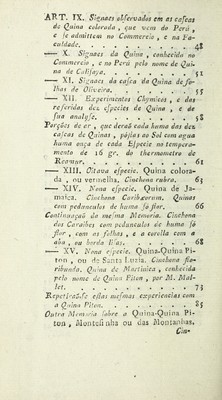 ART. IX. Signaes observados em as cascas
de Quina colorada, que vem do Perú,
e se admittem no Commercio, e na Fa-
culdade. . . . . . . . . 48
— X. Signaes da Quina, conhecida no
Commercio, e no Perú pelo nome de Qui-
na de Calisaya. . . . . . . 51
— XI. Signaes da casca da Quina de fo-
lhas de Oliveira. . . . . . . 55
— XII. Experimentos Chymicos, e das
referidas dez especies de Quina, e de
sua analyse. . . . . . . . 58
Porções de ar, que deraõ cada huma das dez
cascas de Quinas, póstas ao Sol com agua
huma onça de cada Especie no tempera-
mento de 16 gr. do thermometro de
Reamur. . . . . . . . . 61
— XIII. Oitava especie. Quina colora-
da, ou vermelha. Cinchona rubra. 63
— XIV. Nona especie. Quina de Ja-
maica. Cinchona Caribæorum. Quinas
com pedunculos de huma só flor. 66
Continuaçaõ da mesma Memoria. Cinchona
dos Caraibes com pedunculos de huma só
flor, com as folhas, e a corolla com a
aba, ou borda lisas. . . . . . 68
— XV. Nona especie. Quina-Quina Pi-
ton, ou de Santa Luzia. Cinchona flo-
ribunda. Quina de Martinica, conhecida
pelo nome de Quina Piton, por M. Mal-
let. . . . . . . . . . 73
Repetíraõ-se estas mesmas experiencias com
a Quina Piton. . . . . . . 85
Outra Memoria sobre a Quina-Quina Pi-
ton, Montesinha ou das Montanhas.
Cin-